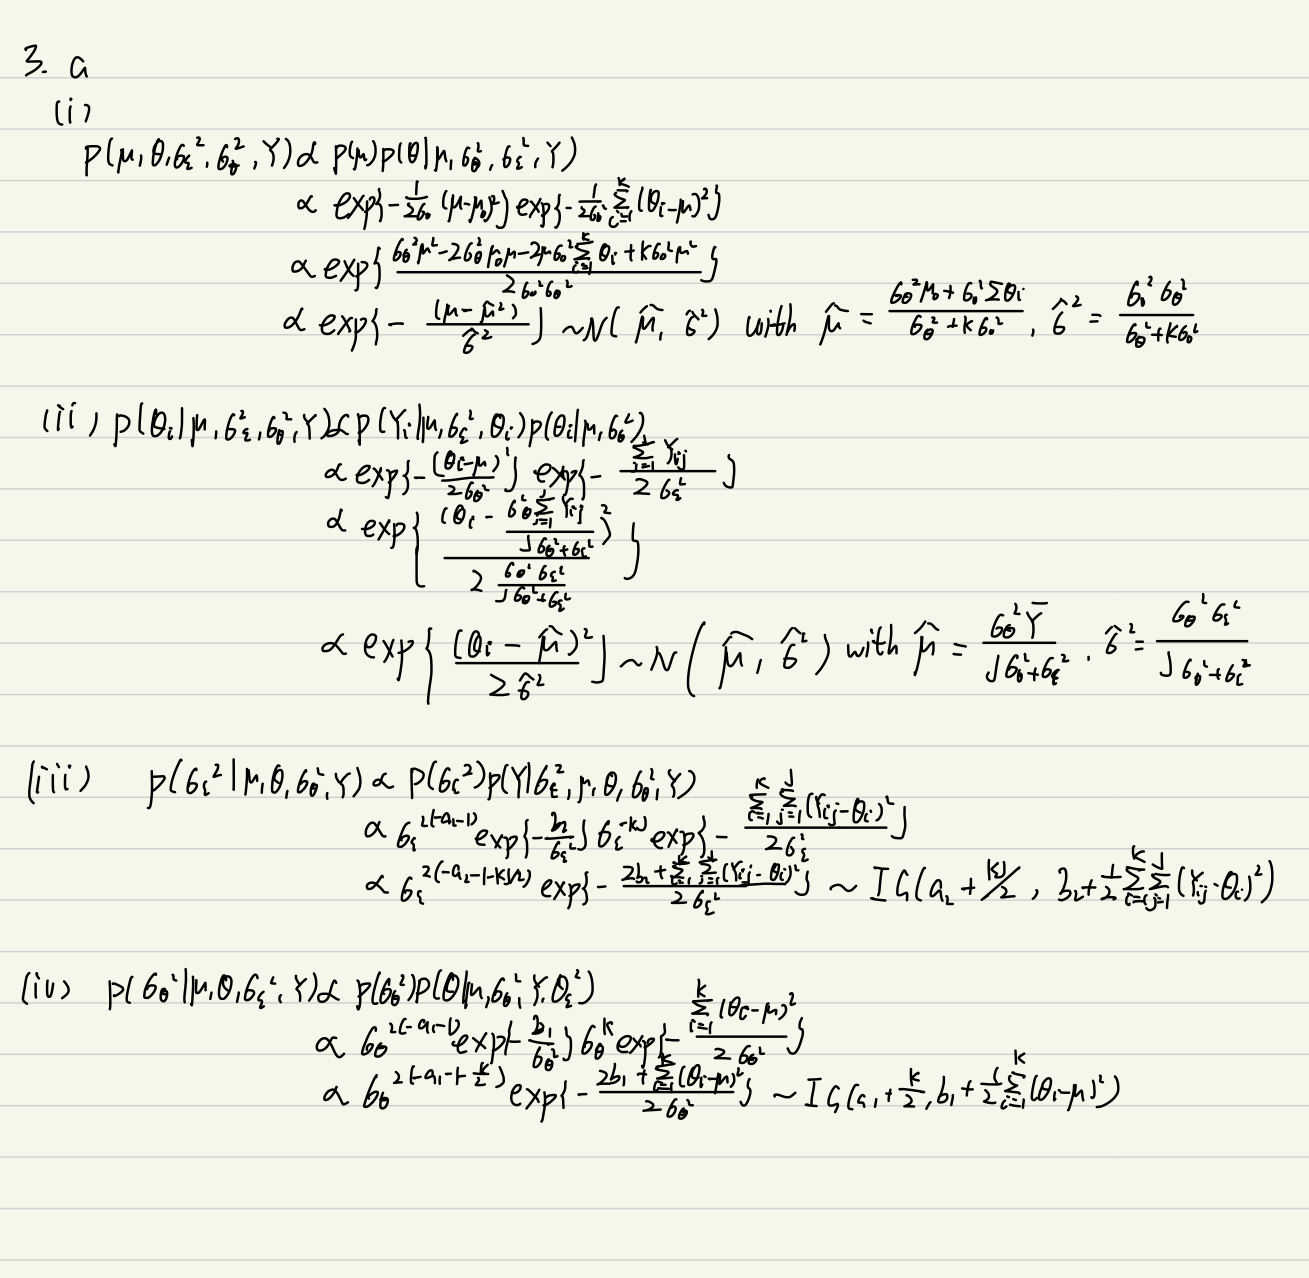 3. a
(i)
p(μ, θ, σε², σθ², Y) ∝ p(μ)p(θ|μ, σθ², σε², Y)
∝ exp{-1/2σ₀ (μ-μ₀)²} exp{-1/2σθ² Σᵢ₌₁ᴷ (θi-μ)²}
∝ exp{ (σθ²μ² - 2σθ²μ₀μ - 2μσ₀² Σᵢ₌₁ᴷ θi + Kσ₀²μ²) / 2σ₀²σθ² }
∝ exp{- (μ-μ̂²) / σ̂²} ~ N(μ̂, σ̂²) with μ̂ = (σθ²μ₀ + σ₀²Σθi) / (σθ² + Kσ₀²), σ̂² = σ₀²σθ² / (σθ² + Kσ₀²)
(ii) p(θi|μ, σε², σθ², Y) ∝ p(Yi|μ, σε², θi)p(θi|μ, σθ²)
∝ exp{- (θi-μ)² / 2σθ²} exp{- Σⱼ₌₁ᴶ Yij / 2σε²}
∝ exp{ (θi - σθ² Σⱼ₌₁ᴶ Yij / (Jσθ²+σε²))² / 2 (σθ²σε² / (Jσθ²+σε²)) }
∝ exp{ (θi - μ̂)² / 2σ̂² } ~ N(μ̂, σ̂²) with μ̂ = σθ²Ȳ / (Jσθ²+σε²), σ̂² = σθ²σε² / (Jσθ²+σε²)
(iii) p(σε²|μ, θ, σθ², Y) ∝ p(σε²)p(Y|σε², μ, θ, σθ², Y)
∝ σε^2(-a₂-1) exp{-b₂/σε²} σε^-KJ exp{- Σᵢ₌₁ᴷ Σⱼ₌₁ᴶ (Yij-θi)² / 2σε²}
∝ σε^2(-a₂-1-KJ/2) exp{- (2b₂ + Σᵢ₌₁ᴷ Σⱼ₌₁ᴶ (Yij-θi)²) / 2σε²} ~ IG(a₂ + KJ/2, b₂ + 1/2 Σᵢ₌₁ᴷ Σⱼ₌₁ᴶ (Yij-θi)²)
(iv) p(σθ²|μ, θ, σε², Y) ∝ p(σθ²)p(θ|μ, σθ², Y, θε²)
∝ σθ^2(-a₁-1) exp{-b₁/σθ²} σθ^K exp{- Σᵢ₌₁ᴷ (θi-μ)² / 2σθ²}
∝ σθ^2(-a₁-1-K/2) exp{- (2b₁ + Σᵢ₌₁ᴷ (θi-μ)²) / 2σθ²} ~ IG(a₁ + K/2, b₁ + 1/2 Σᵢ₌₁ᴷ (θi-μ)²)